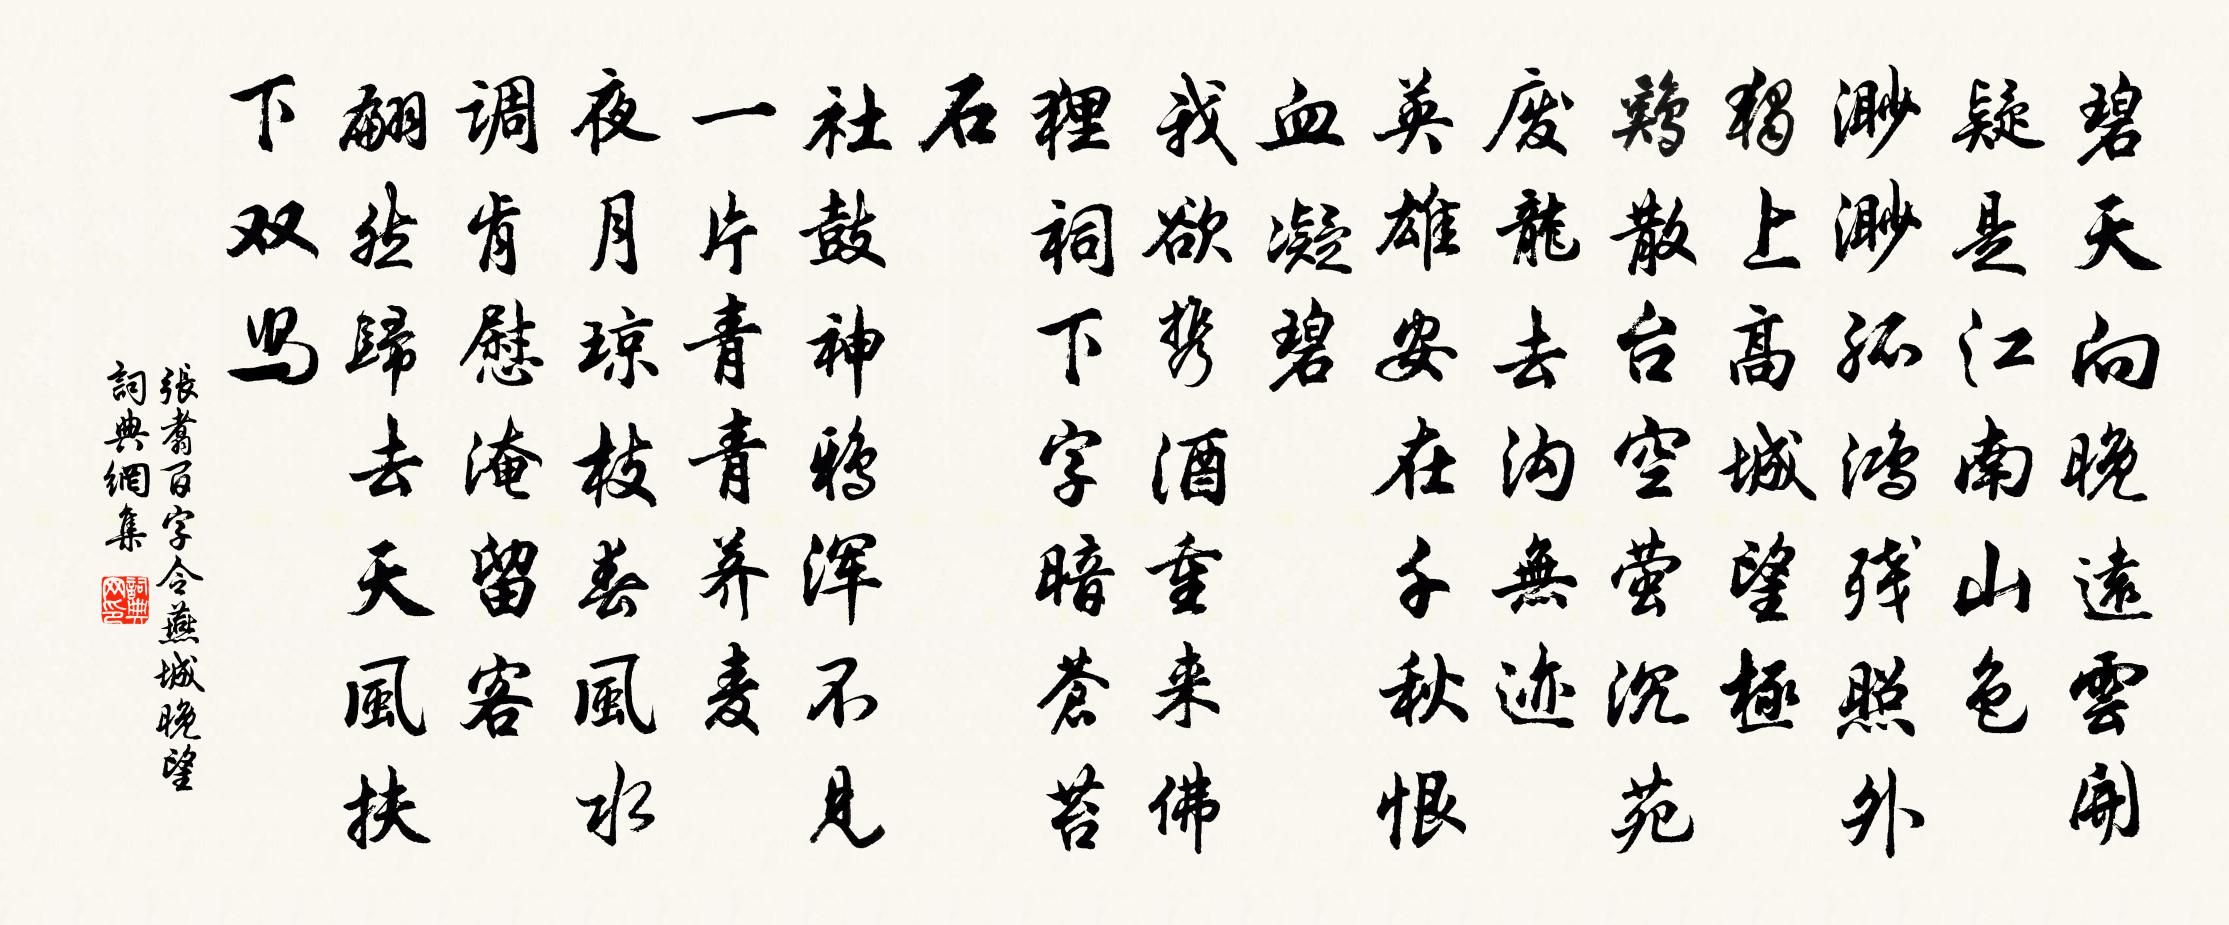 碧天向晚遠雲開
疑是江南山色
渺渺孤鸿残照外
獨上高城望極
鷄散台空萤沉苑
废龍去沟無迹
英雄安在千秋恨
血凝碧
我欲携酒重来佛
狸祠下字暗蒼苔
石
社鼓神鸦浑不見
一片青青荞麦
夜月琼枝春風水
调肯慰淹留客
翩然歸去天風扶
下双舄
張翥百字令燕城晚望
詞典網集
詞典网印